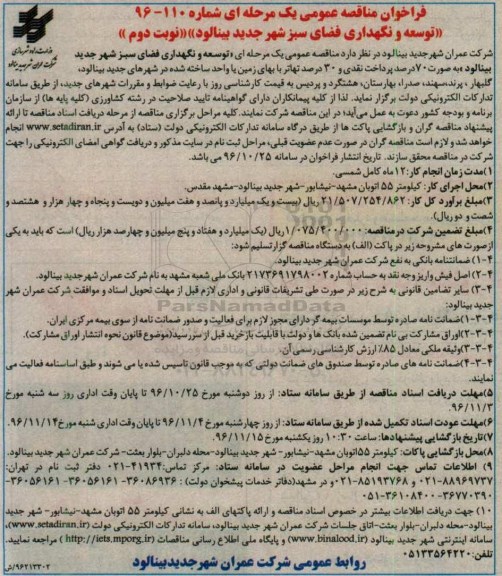 فراخوان مناقصه عمومی یک مرحله ای شماره ۱۱۰-۹۶
«توسعه و نگهداری فضای سبز شهر جدید بینالود» «نوبت دوم»
شرکت عمران شهر جدید بینالود در نظر دارد مناقصه عمومی یک مرحله ای «توسعه و نگهداری فضای سبز شهر جدید
بینالود» به صورت ۷۰ درصد پرداخت نقدی و ۳۰ درصد تهاتر با بهای زمین یا واحد ساخته شده در شهرهای جدید بینالود،
گلبهار، پرند، سهند، صدرا، بهارستان، هشتگرد و پردیس به قیمت کارشناسی روز با رعایت ضوابط و مقررات شهرهای جدید، از طریق سامانه
تدارکات الکترونیکی دولت برگزار نماید. لذا از کلیه پیمانکاران دارای گواهینامه تایید صلاحیت در رشته کشاورزی (کلیه پایه ها) از سازمان
برنامه و بودجه کشور دعوت به عمل می آید؛ در این مناقصه شرکت نمایند. کلیه مراحل برگزاری مناقصه از مرحله دریافت اسناد مناقصه تا ارائه
پیشنهاد مناقصه گران و بازگشایی پاکت ها از طریق درگاه سامانه تدارکات الکترونیکی دولت (ستاد) به آدرس www.setadiran.ir انجام
خواهد شد و لازم است مناقصه گران در صورت عدم عضویت قبلی، مراحل ثبت نام در سایت مذکور و دریافت گواهی امضای الکترونیکی را جهت
شرکت در مناقصه محقق سازند. تاریخ انتشار فراخوان در سامانه ۹۶/۱۰/۲۵ می باشد.
۱)مدت زمان انجام کار: ۱۲ ماه کامل شمسی.
۲)محل اجرای کار: کیلومتر ۵۵ اتوبان مشهد-نیشابور-شهر جدید بینالود-مشهد مقدس.
۳)مبلغ برآورد کل کار: ۲۱/۵۰۷/۲۵۴/۸۶۲ ریال (بیست و یک میلیارد و پانصد و هفت میلیون و دویست و پنجاه و چهار هزار و هشتصد و
شصت و دو ریال).
۴)مبلغ تضمین شرکت در مناقصه: ۱/۰۷۵/۴۰۰/۰۰۰ ریال (یک میلیارد و هفتاد و پنج میلیون و چهارصد هزار ریال) است که باید به یکی
از صورت های مشروحه زیر در پاکت (الف) به دستگاه مناقصه گزار تسلیم شود:
۴-۱) ضمانتنامه بانکی به نفع شرکت عمران شهر جدید بینالود.
۴-۲) اصل فیش واریز وجه نقد به حساب شماره ۲۱۷۳۶۹۱۷۹۸۰۰۲ بانک ملی شعبه مشهد به نام شرکت عمران شهر جدید بینالود.
۴-۳) سایر تضامین قانونی به شرح زیر در صورت طی تشریفات قانونی و اداری لازم قبل از مهلت تحویل اسناد و موافقت شرکت عمران شهر
جدید بینالود:
۴-۳-۱)ضمانت نامه صادره توسط موسسات بیمه گر دارای مجوز لازم برای فعالیت و صدور ضمانت نامه از سوی بیمه مرکزی ایران.
۴-۳-۲)اوراق مشارکت بی نام تضمین شده بانک ها و دولت با قابلیت بازخرید قبل از سررسید (موضوع قانون نحوه انتشار اوراق مشارکت).
۴-۳-۳)وثیقه ملکی معادل ۸۵٪ ارزش کارشناسی رسمی آن.
۴-۳-۴)ضمانت نامه های صادره توسط صندوق های ضمانت دولتی که به موجب قانون تاسیس شده یا می شوند و طبق اساسنامه فعالیت می
نمایند.
۵)مهلت دریافت اسناد مناقصه از طریق سامانه ستاد: از روز دوشنبه مورخ ۹۶/۱۰/۲۵ تا پایان وقت اداری روز سه شنبه مورخ
۹۶/۱۱/۳.
۶)مهلت عودت اسناد تکمیل شده از طریق سامانه ستاد: از روز چهارشنبه مورخ ۹۶/۱۱/۴ تا پایان وقت اداری شنبه مورخ ۹۶/۱۱/۱۴.
۷)تاریخ بازگشایی پیشنهادها: ساعت ۱۰:۳۰ روز یکشنبه مورخ ۹۶/۱۱/۱۵
۸)محل بازگشایی پاکات: کیلومتر ۵۵ اتوبان مشهد-نیشابور-شهر جدید بینالود-محله دلبران-بلوار بعثت-شرکت عمران شهر جدید بینالود.
۹) اطلاعات تماس جهت انجام مراحل عضویت در سامانه ستاد: مرکز تماس: ۴۱۹۳۴-۰۲۱ دفتر ثبت نام در تهران:
۸۸۹۶۹۷۳۷-۰۲۱ و ۸۵۱۹۳۷۶۸-۰۲۱ و در مشهد (دفاتر خدمات پیشخوان دولت): ۳۶۰۸۶۹۳۶-۳۶۰۵۶۱۶۱-۳۶۰۵۶۱۶۱-
۳۶۷۷۰۳۹۰-۳۶۱۰۸۴۰۰-۰۵۱
جهت دریافت اطلاعات بیشتر در خصوص اسناد مناقصه و ارائه پاکتهای الف به نشانی کیلومتر ۵۵ اتوبان مشهد-نیشابور-شهر جدید
بینالود-محله دلبران-بلوار بعثت-اتاق جلسات شرکت عمران شهر جدید بینالود، سامانه تدارکات الکترونیکی دولت (www.setadiran.ir)،
سامانه اینترنتی شهر جدید بینالود (www.binalood.ir) و پایگاه ملی اطلاع رسانی مناقصات (http://iets.mporg.ir) مراجعه نمایید.
تلفن: ۰۵۱۳۳۵۶۴۲۲۰
روابط عمومی شرکت عمران شهر جدید بینالود
۹۶۲۱۳۳۰۲/ش